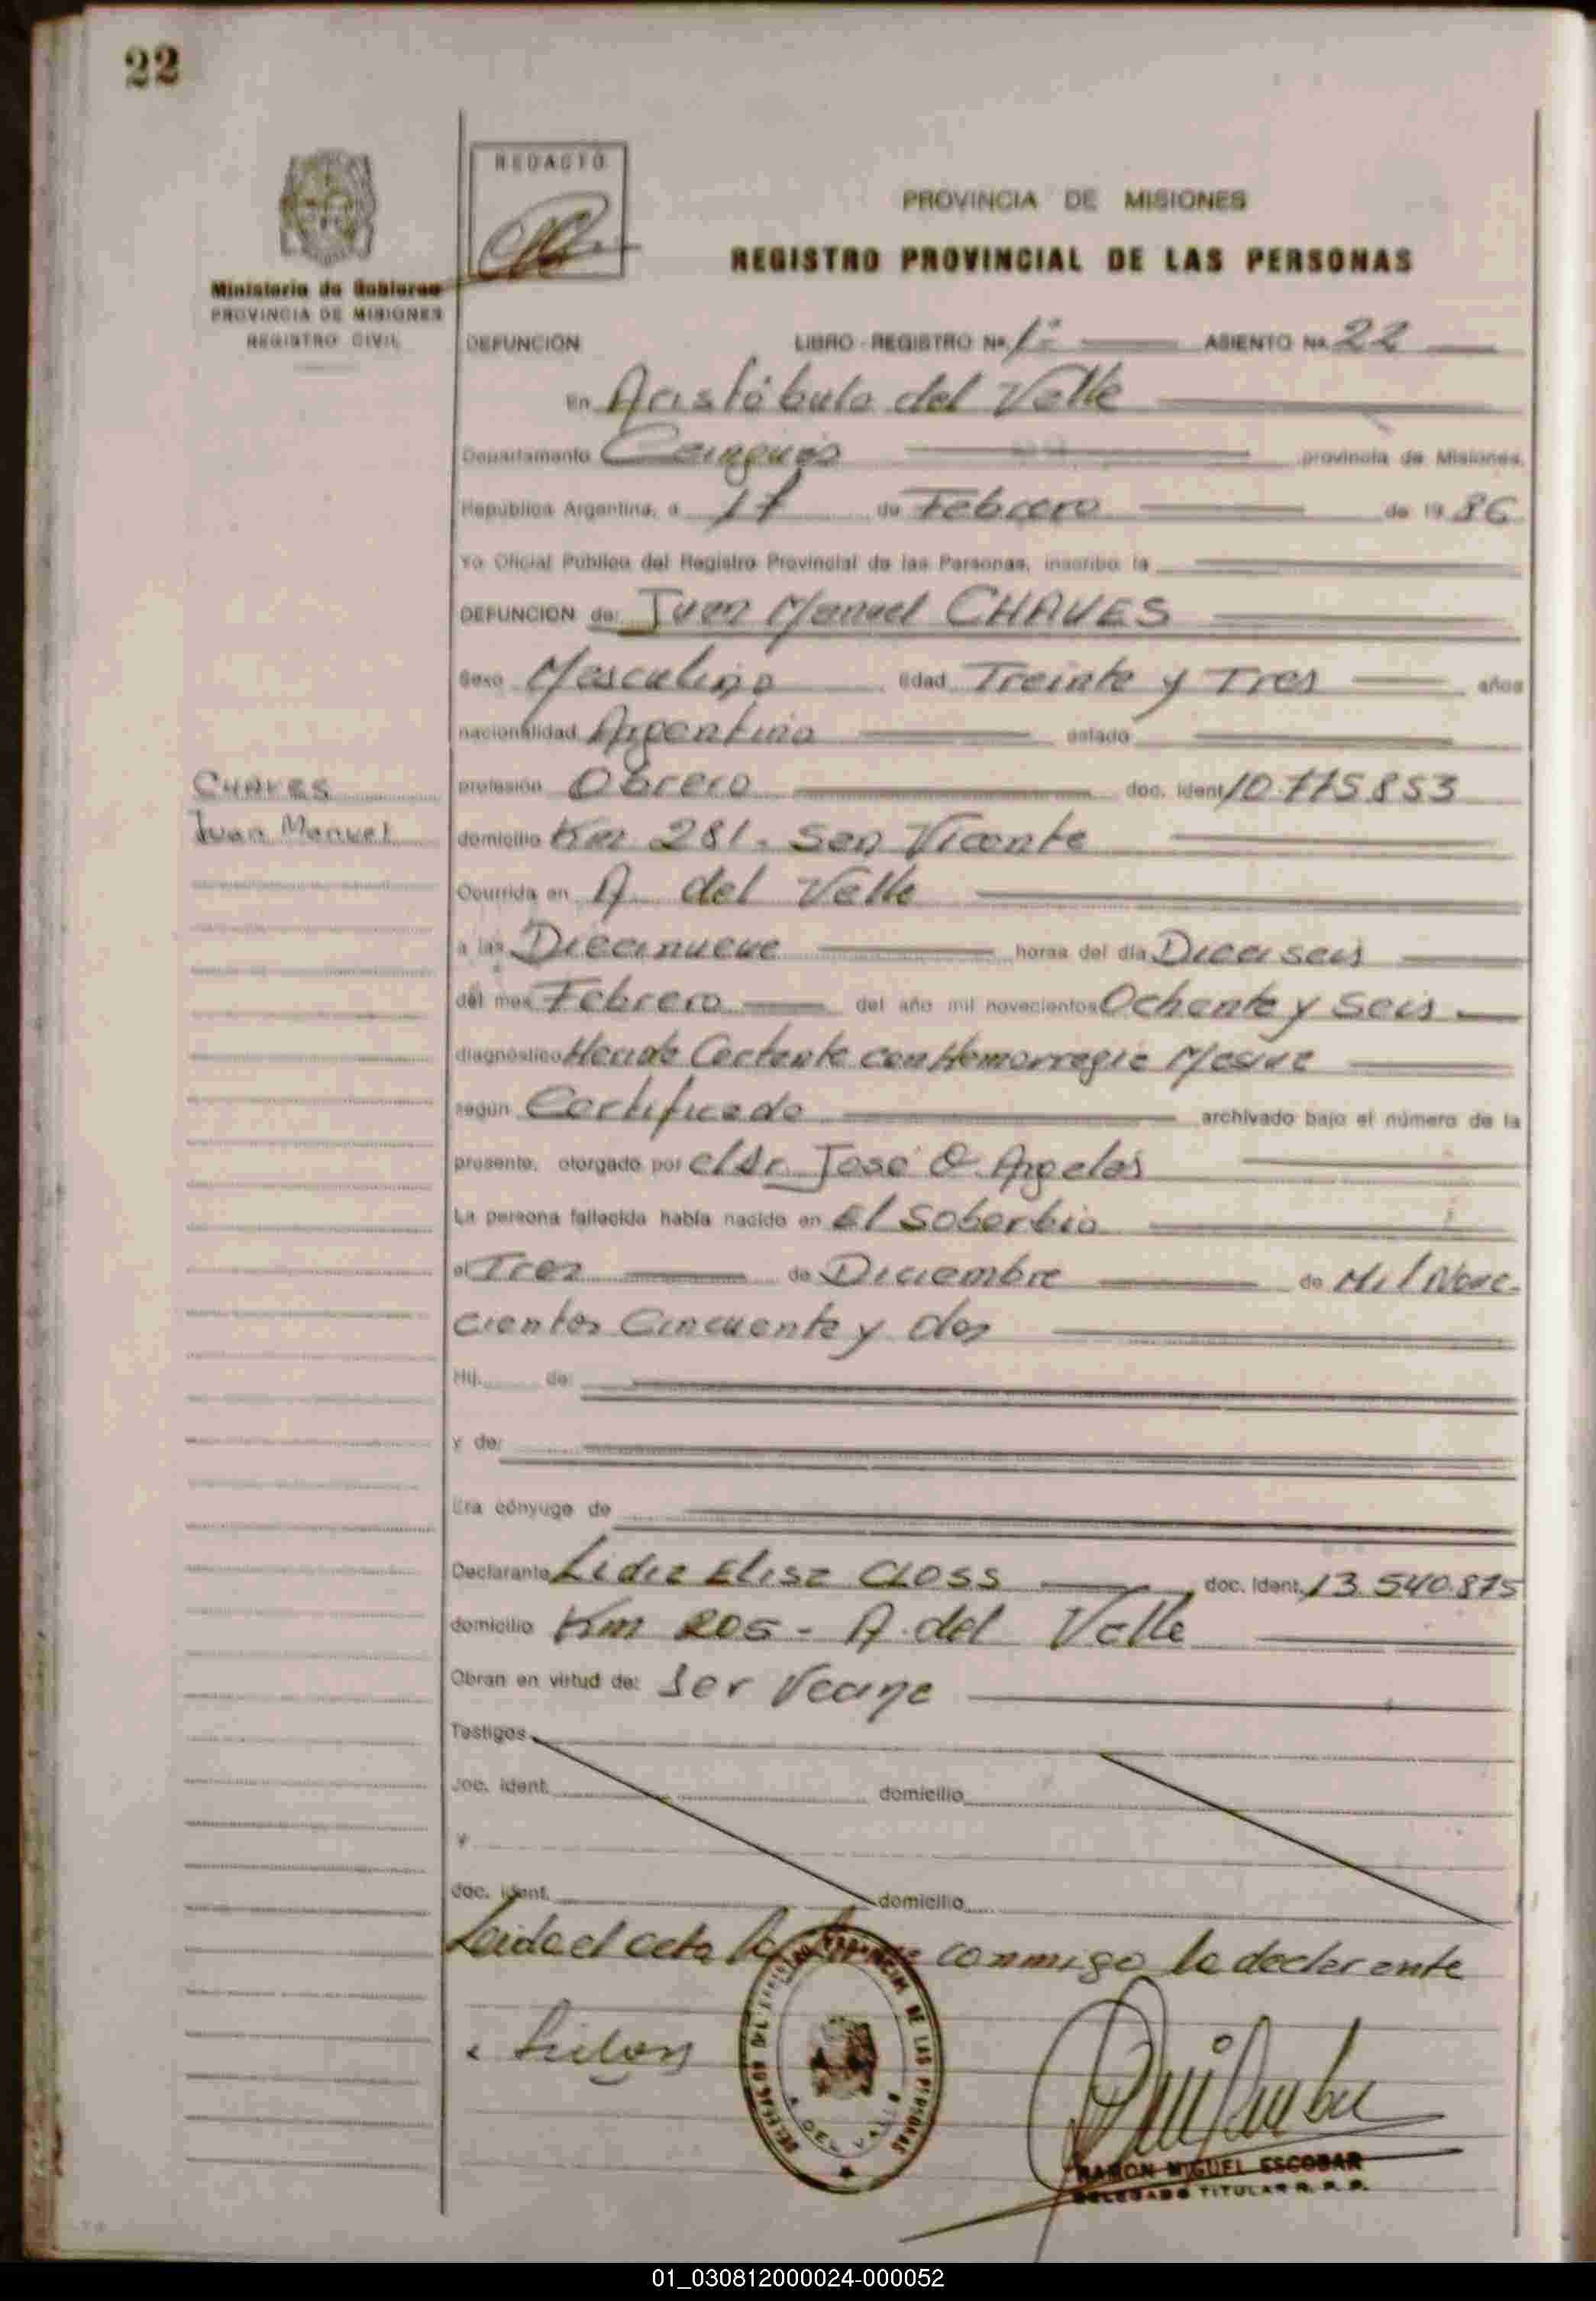 22
REDACTO
Ministerio de Gobierno
PROVINCIA DE MISIONES
REGISTRO CIVIL
PROVINCIA DE MISIONES
REGISTRO PROVINCIAL DE LAS PERSONAS
DEFUNCION LIBRO - REGISTRO Nº 1º ASIENTO Nº 22
En Aristóbulo del Valle
Departamento Cainguás provincia de Misiones,
República Argentina, a 17 de Febrero de 19 86
Yo Oficial Público del Registro Provincial de las Personas, inscribo la
DEFUNCION de: Juan Manuel CHAVES
Sexo Masculino Edad Treinta y Tres años
nacionalidad Argentina estado
profesión Obrero doc. ident. 10.775.853
CHAVES
Juan Manuel
domicilio Km 281 - San Vicente
Ocurrida en A. del Valle
a las Diecinueve horas del día Dieciseis
del mes Febrero del año mil novecientos Ochenta y Seis
diagnóstico Herida Cortante con Hemorragia Masiva
según Certificado archivado bajo el número de la
presente, otorgado por el dr. José O. Angeles
La persona fallecida había nacido en El Soberbio
el Tres de Diciembre de Mil Nove-
cientos Cincuenta y dos
Hij. de:
y de:
Era cónyuge de
Declarante Lidia Elisa CLOSS doc. ident. 13.540.875
domicilio Km 205 - A. del Valle
Obran en virtud de: Ser Vecina
Testigos
doc. ident. domicilio
y
doc. ident. domicilio
Leida el acta la conmigo la declarante
DELEGACION DEL REGISTRO PROVINCIAL DE LAS PERSONAS
A. DEL VALLE
RAMON MIGUEL ESCOBAR
DELEGADO TITULAR R. P. P.
01_030812000024-000052